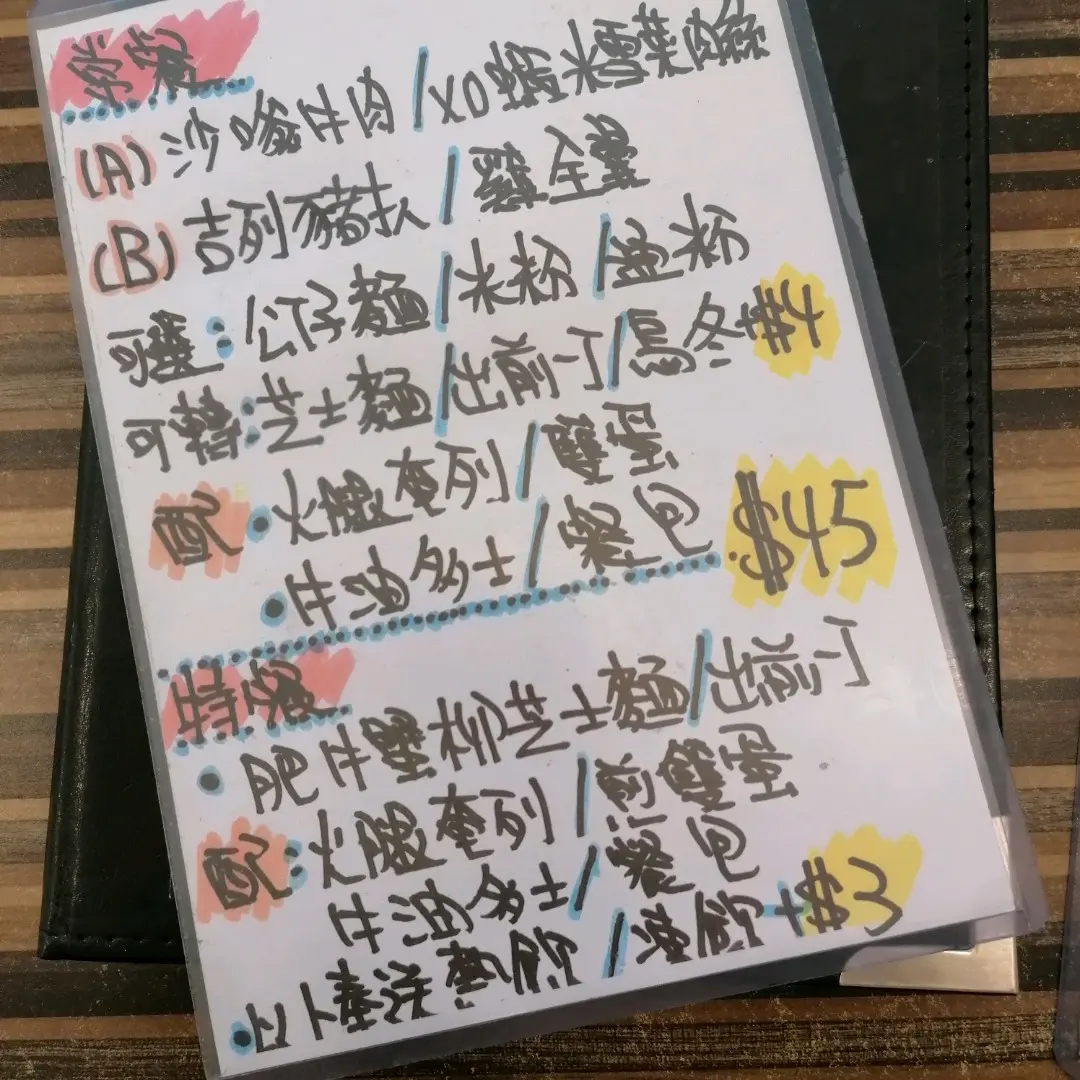 常餐
(A) 沙嗲牛肉/XO醬米粉雪菜肉絲
(B) 吉列豬扒/雞全翼
可選：公仔麵/米粉/通粉
可轉：芝士麵/出前一丁/烏冬 +$4
配 • 火腿奄列/雙蛋
• 牛油多士/餐包 $45
特餐
• 肥牛芝士麵/出前一丁
配：火腿奄列/煎雙蛋
牛油多士/餐包
• 下午 /